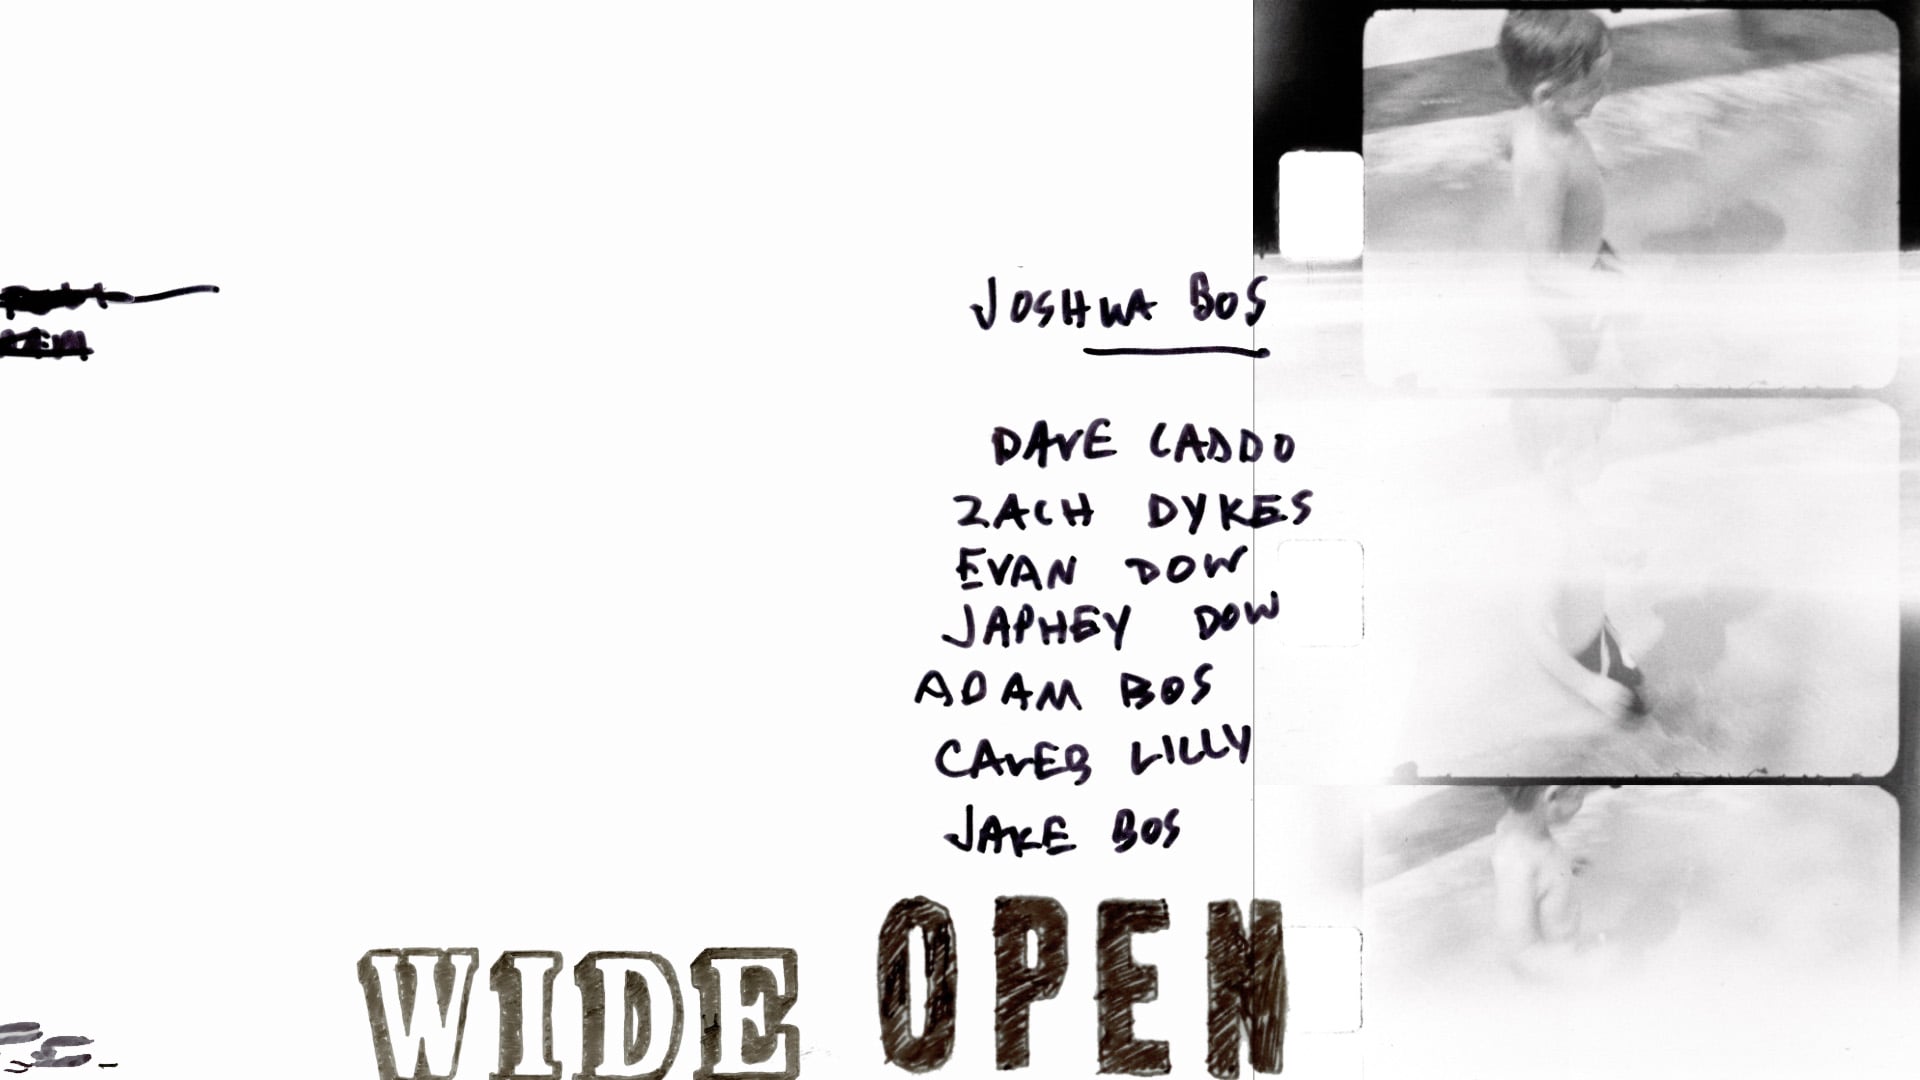 JOSHUA BOS
DAVE CADDO
ZACH DYKES
EVAN DOW
JAPHEY DOW
ADAM BOS
CALEB LILLY
JAKE BOS
WIDE OPEN